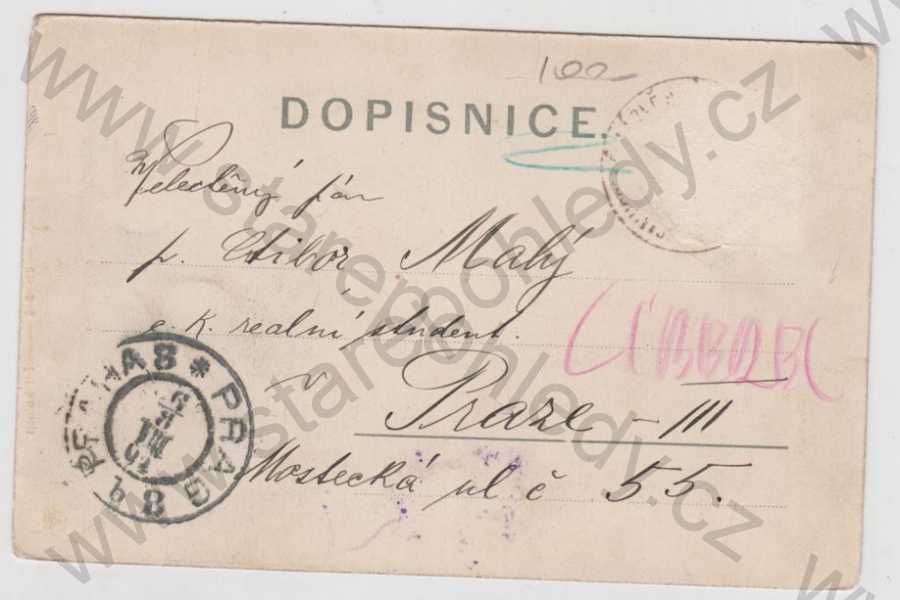 100
DOPISNICE.
Velectěný pán
p. Ctibor Malý
c. k. realní student.
v Praze - III
Mostecká ul č 55.
PRAG
www.starepohledy.cz